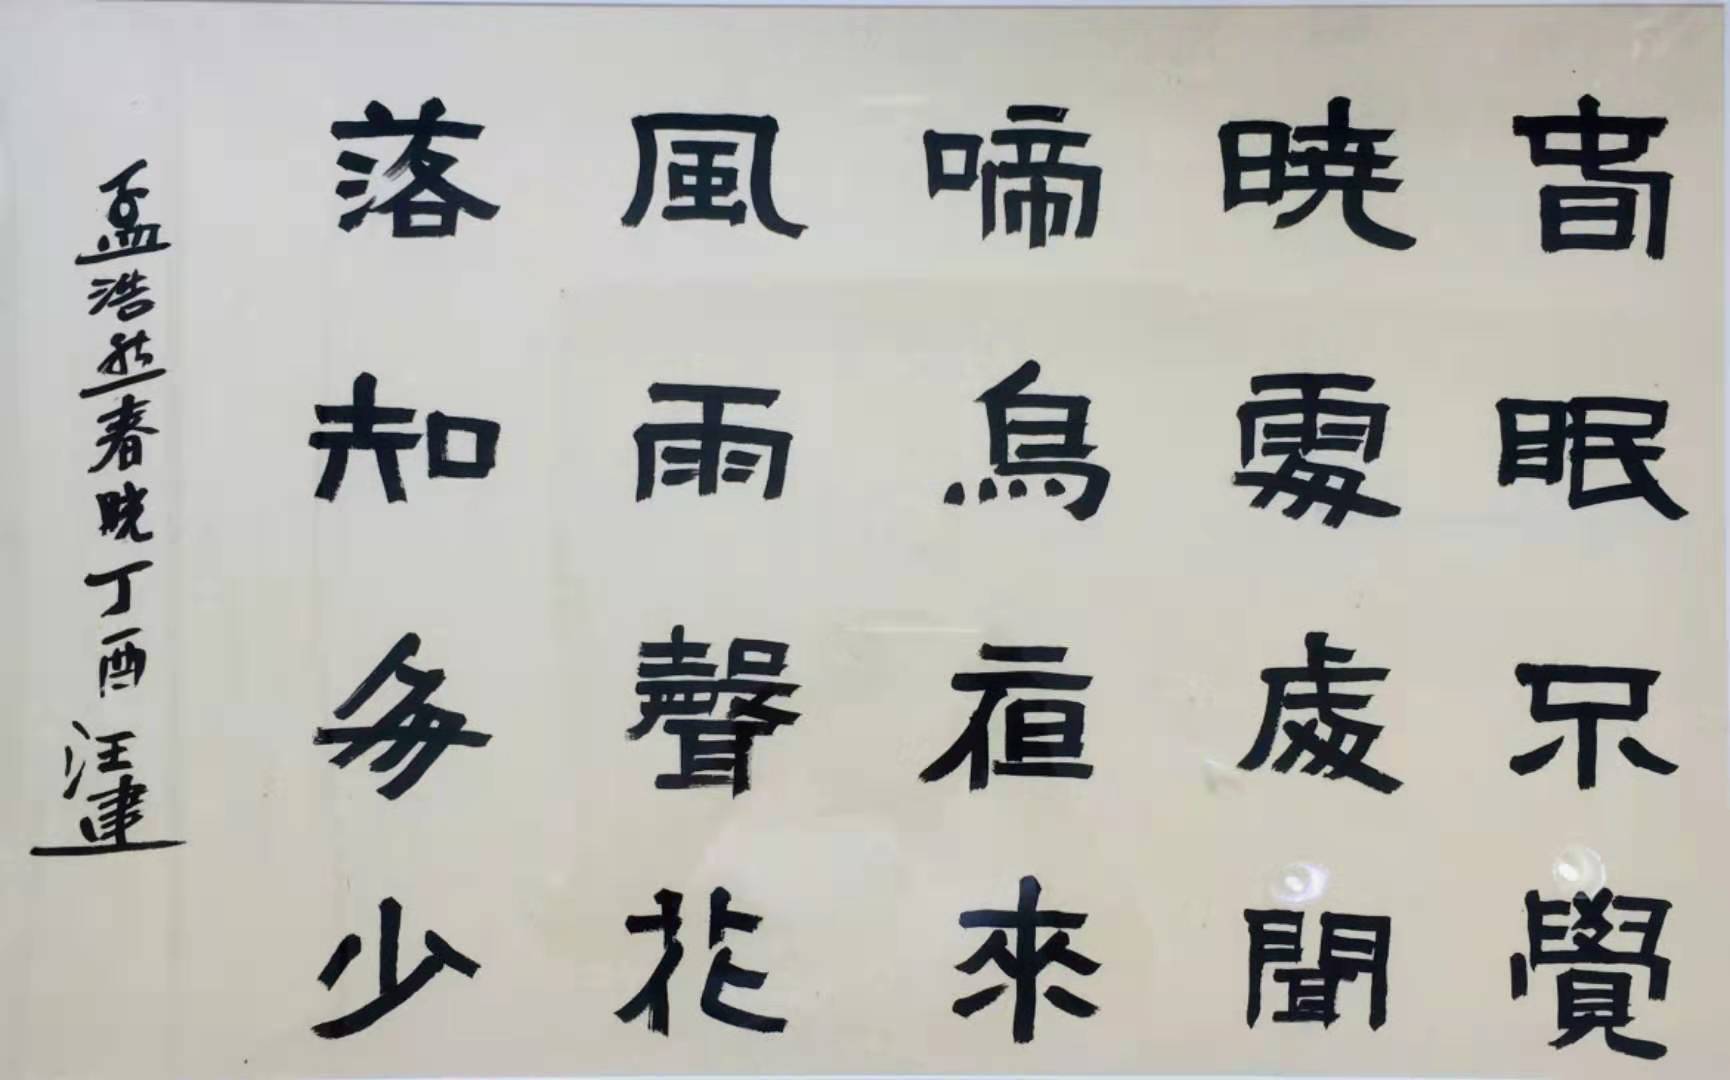 春眠不覺
曉處處聞
啼鳥夜來
風雨聲花
落知多少
孟浩然春晓丁酉汪建